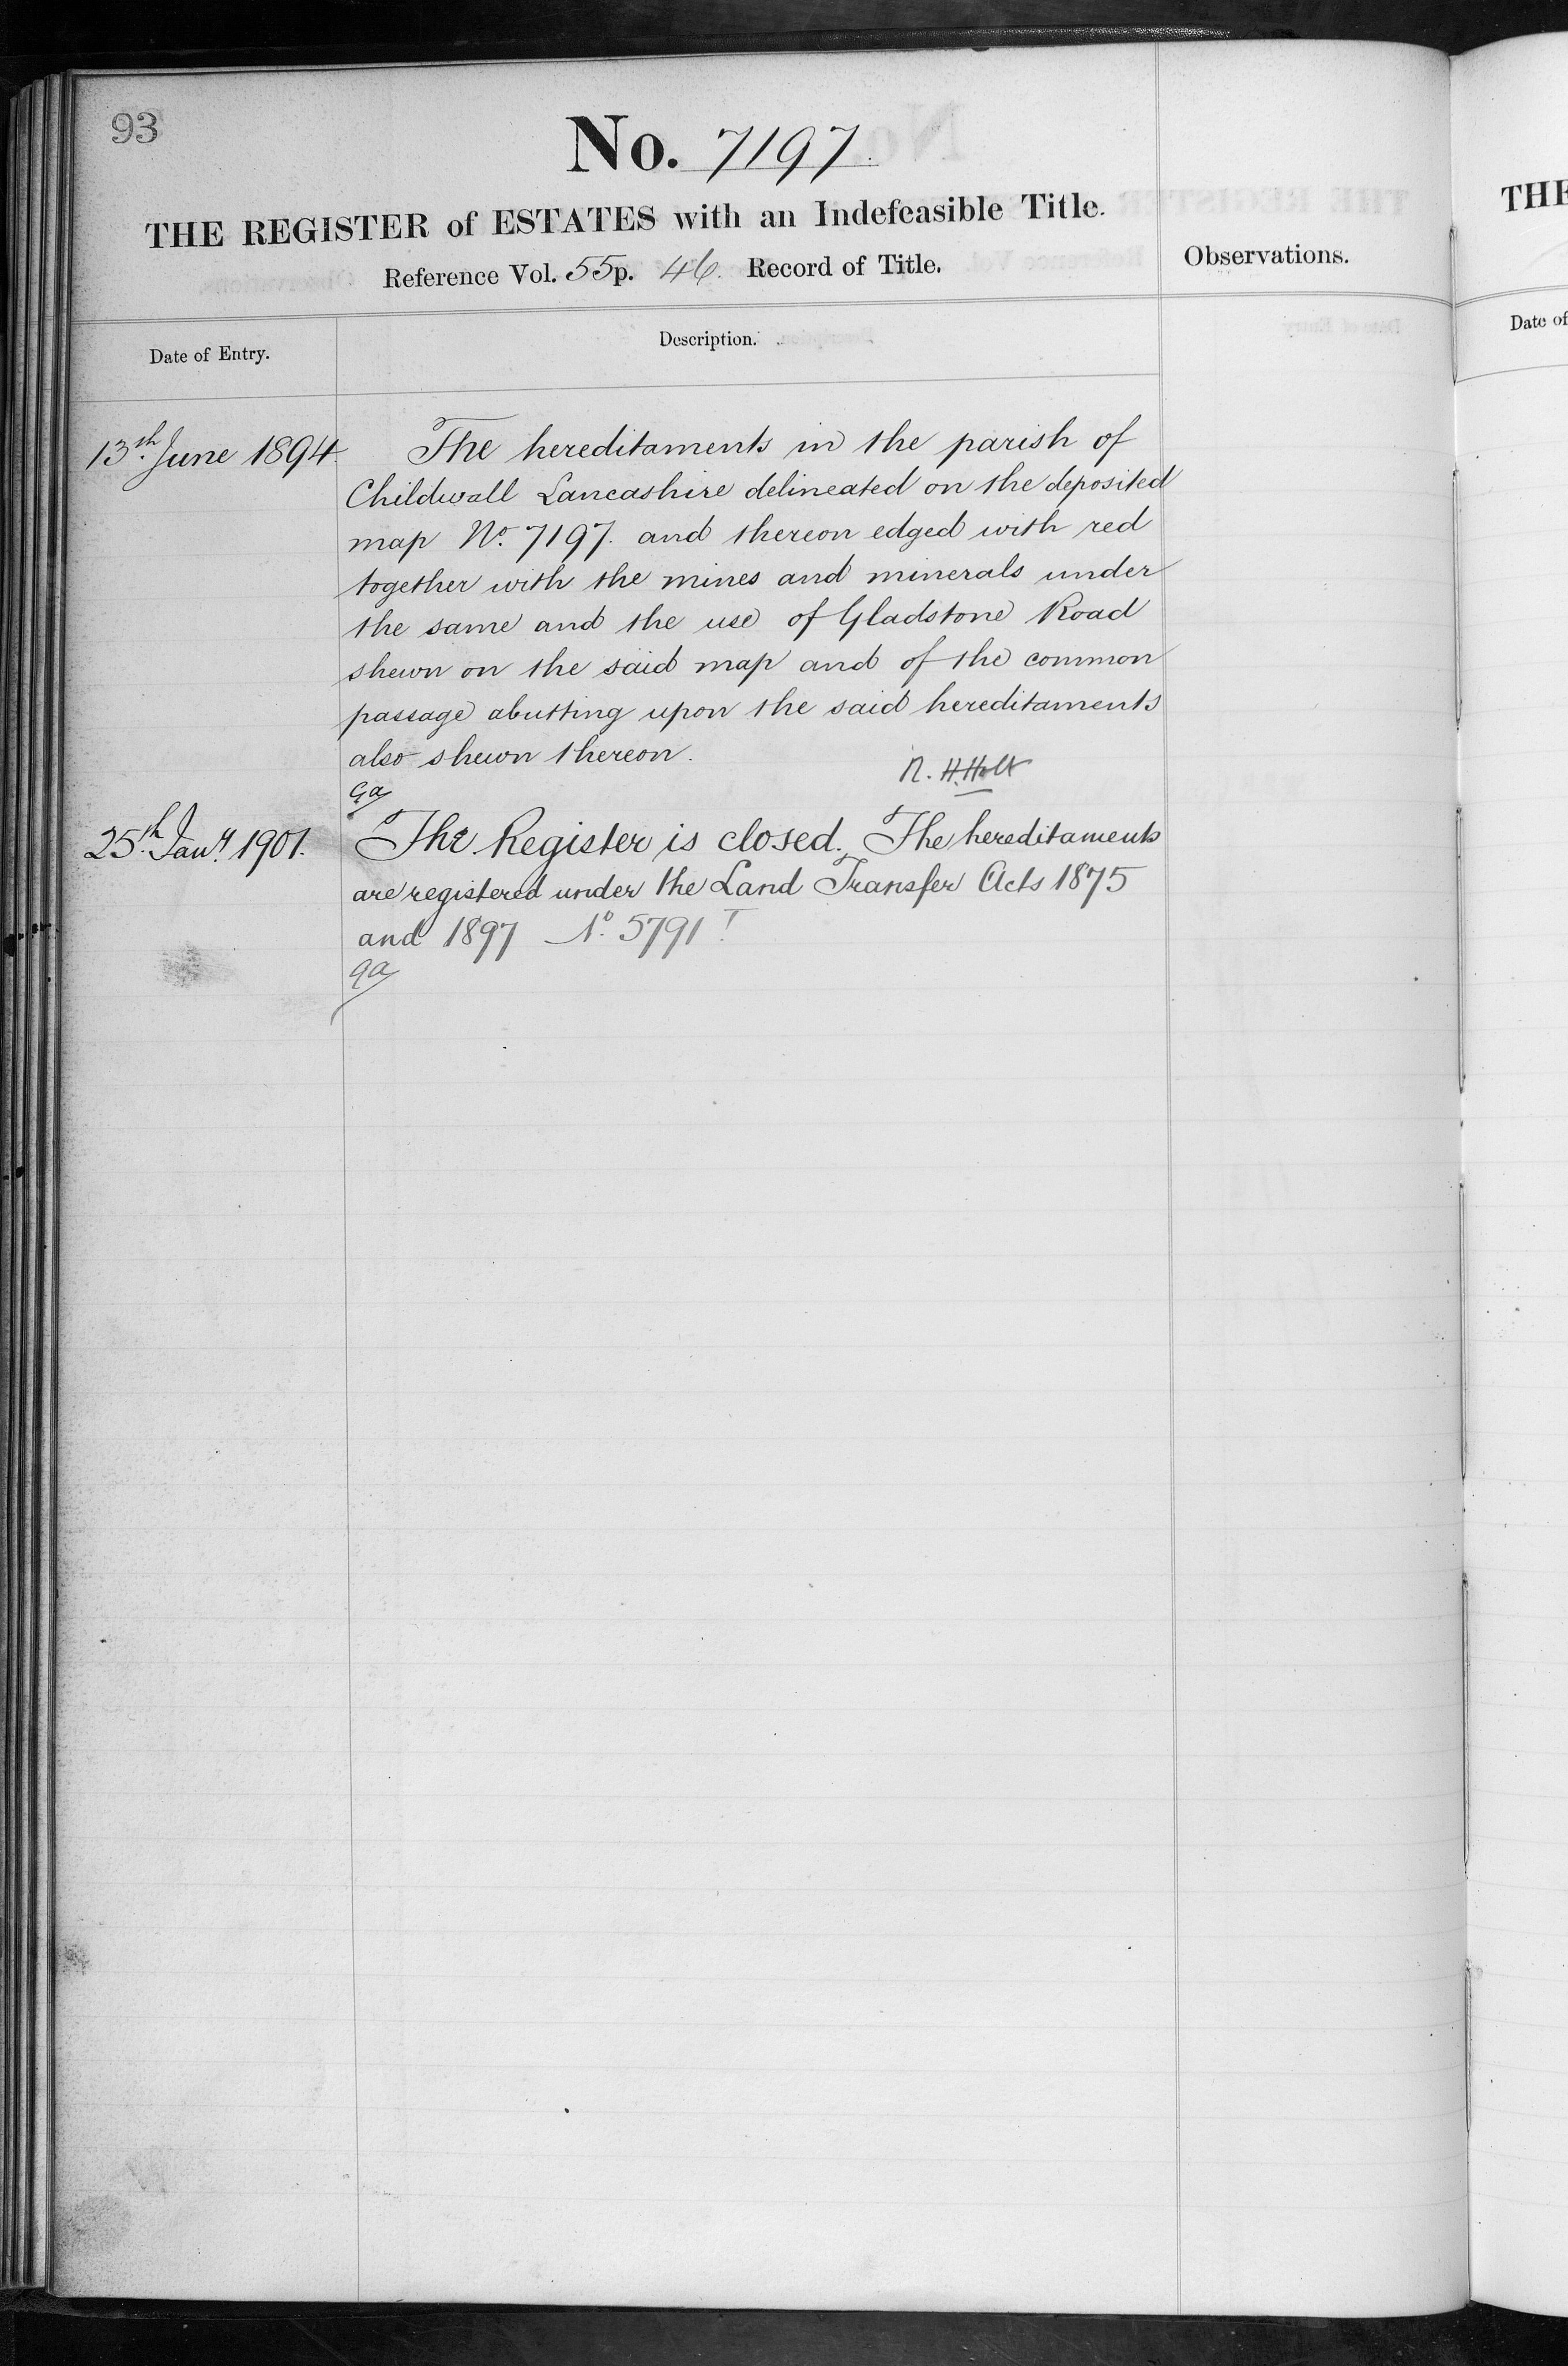 93
No. 7197.
THE REGISTER of ESTATES with an Indefeasible Title.
Reference Vol. 55 p. 46. Record of Title.
Observations.
Date of Entry.
Description.
13th June 1894.
The hereditaments in the parish of
Childwall Lancashire delineated on the deposited
map No. 7197. and thereon edged with red
together with the mines and minerals under
the same and the use of Gladstone Road
shewn on the said map and of the common
passage abutting upon the said hereditaments
also shewn thereon.
R. H. Holt
25th Jany 1901.
The Register is closed. The hereditaments
are registered under the Land Transfer Acts 1875
and 1897 No. 5791
THE
Date of